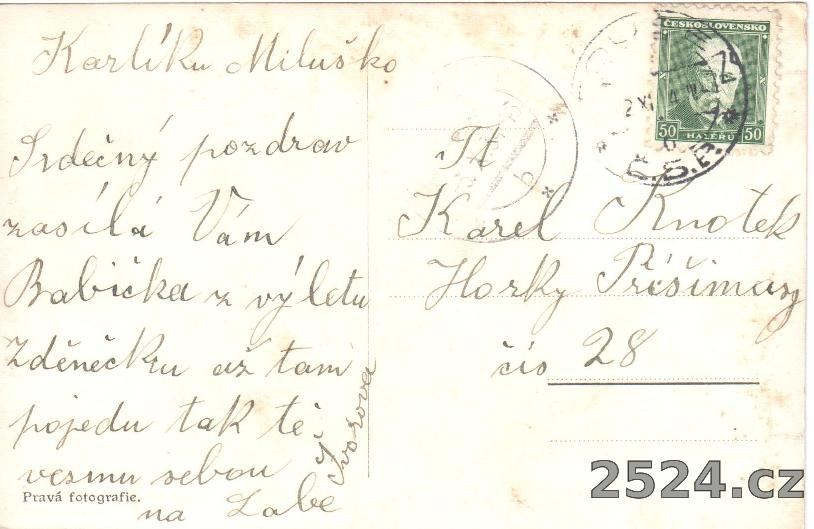 Karlíku Miluško
Srdečný pozdrav
zasílá Vám
Babička z výletu
Zděnečku až tam
pojedu tak tě
vesmu sebou
na Labe
Pravá fotografie.
ČESKOSLOVENSKO
50 HALÉŘŮ 50
Tt
Karel Knotek
Horky Přišimasy
čís 28
2524.cz